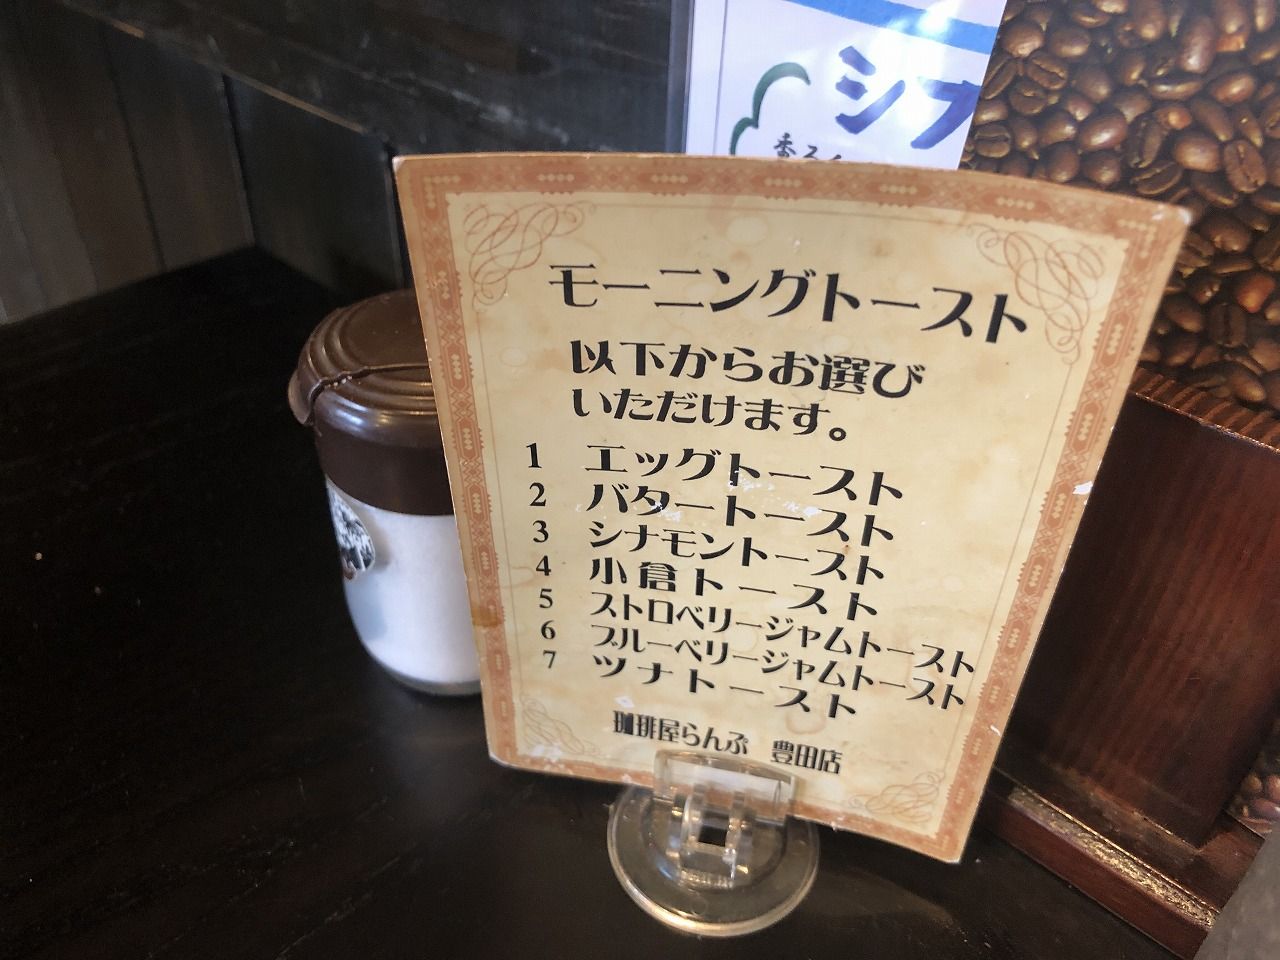 シフ
香るく
モーニングトースト
以下からお選び
いただけます。
1 エッグトースト
2 バタートースト
3 シナモントースト
4 小倉トースト
5 ストロベリージャムトースト
6 ブルーベリージャムトースト
7 ツナトースト
珈琲屋らんぷ 豊田店